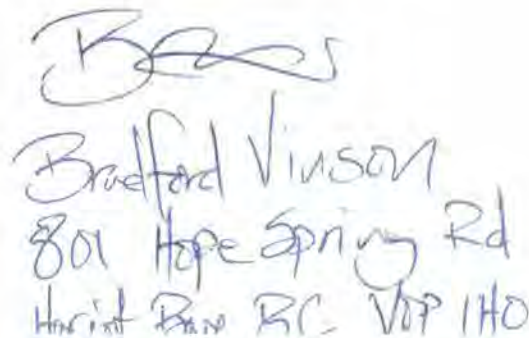 Bradford Vinson
801 Hope Spring Rd
Heriot Bay BC V0P 1H0